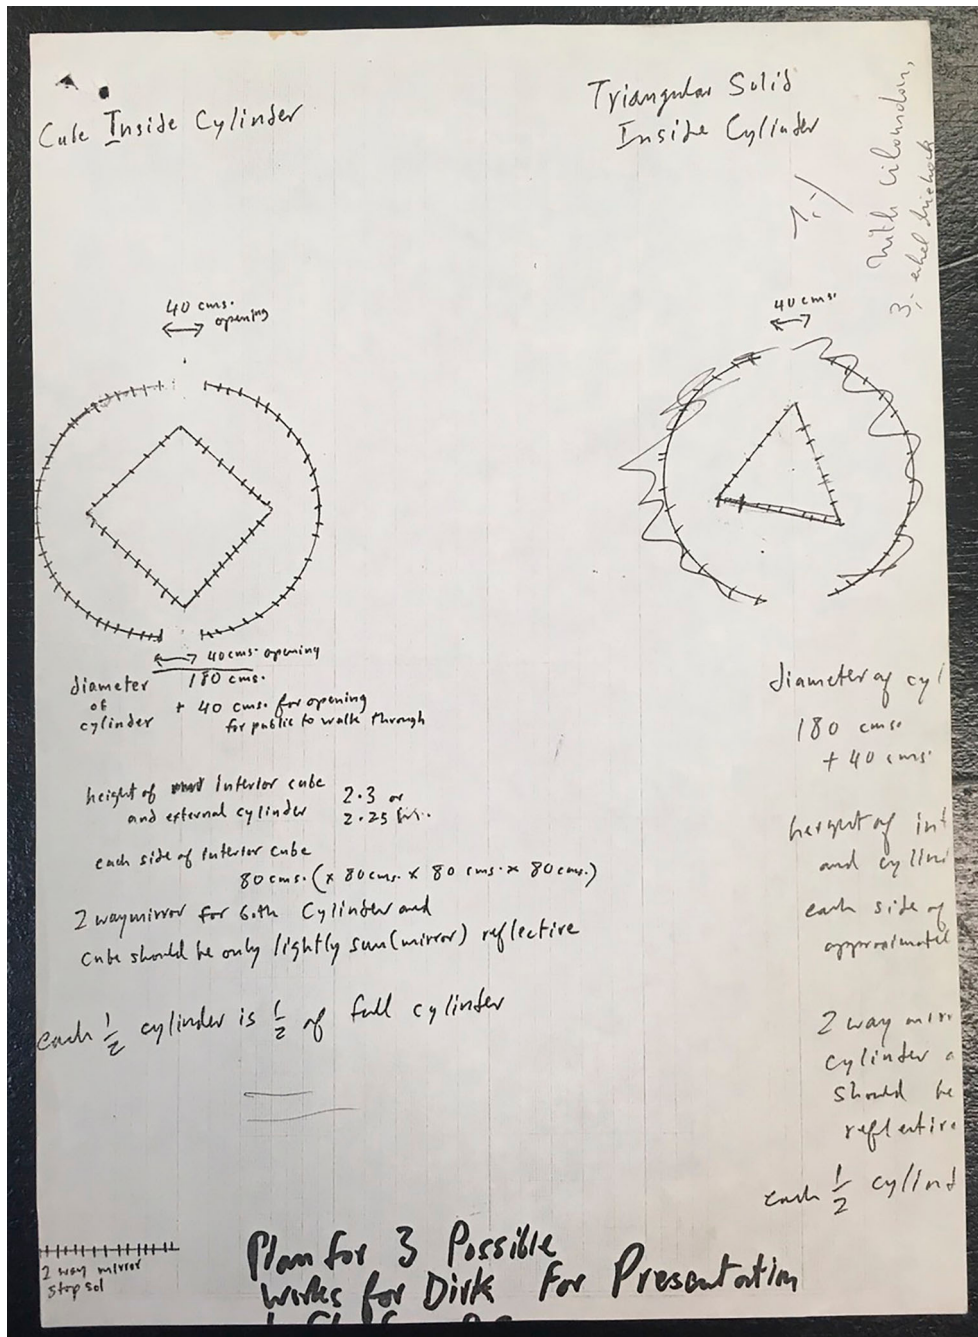 Cube Inside Cylinder
40 cms.
opening
40 cms. opening
diameter
of
cylinder
180 cms.
+ 40 cms. for opening
for public to walk through
height of interior cube
and external cylinder
2.3 or
2.25
each side of interior cube
80 cms. (x 80 cms. x 80 cms. x 80 cms.)
2 way mirror for both Cylinder and
cube should be only lightly sun (mirror) reflective
each 1/2 cylinder is 1/2 of full cylinder
2 way mirror
stopsol
Triangular Solid
Inside Cylinder
40 cms.
diameter of cyl
180 cms.
+ 40 cms.
height of int
and cylin
each side of
approximatel
2 way mirr
cylinder a
should be
reflective
each 1/2 cylind
Plan for 3 Possible
Works for Dirk For Presentation